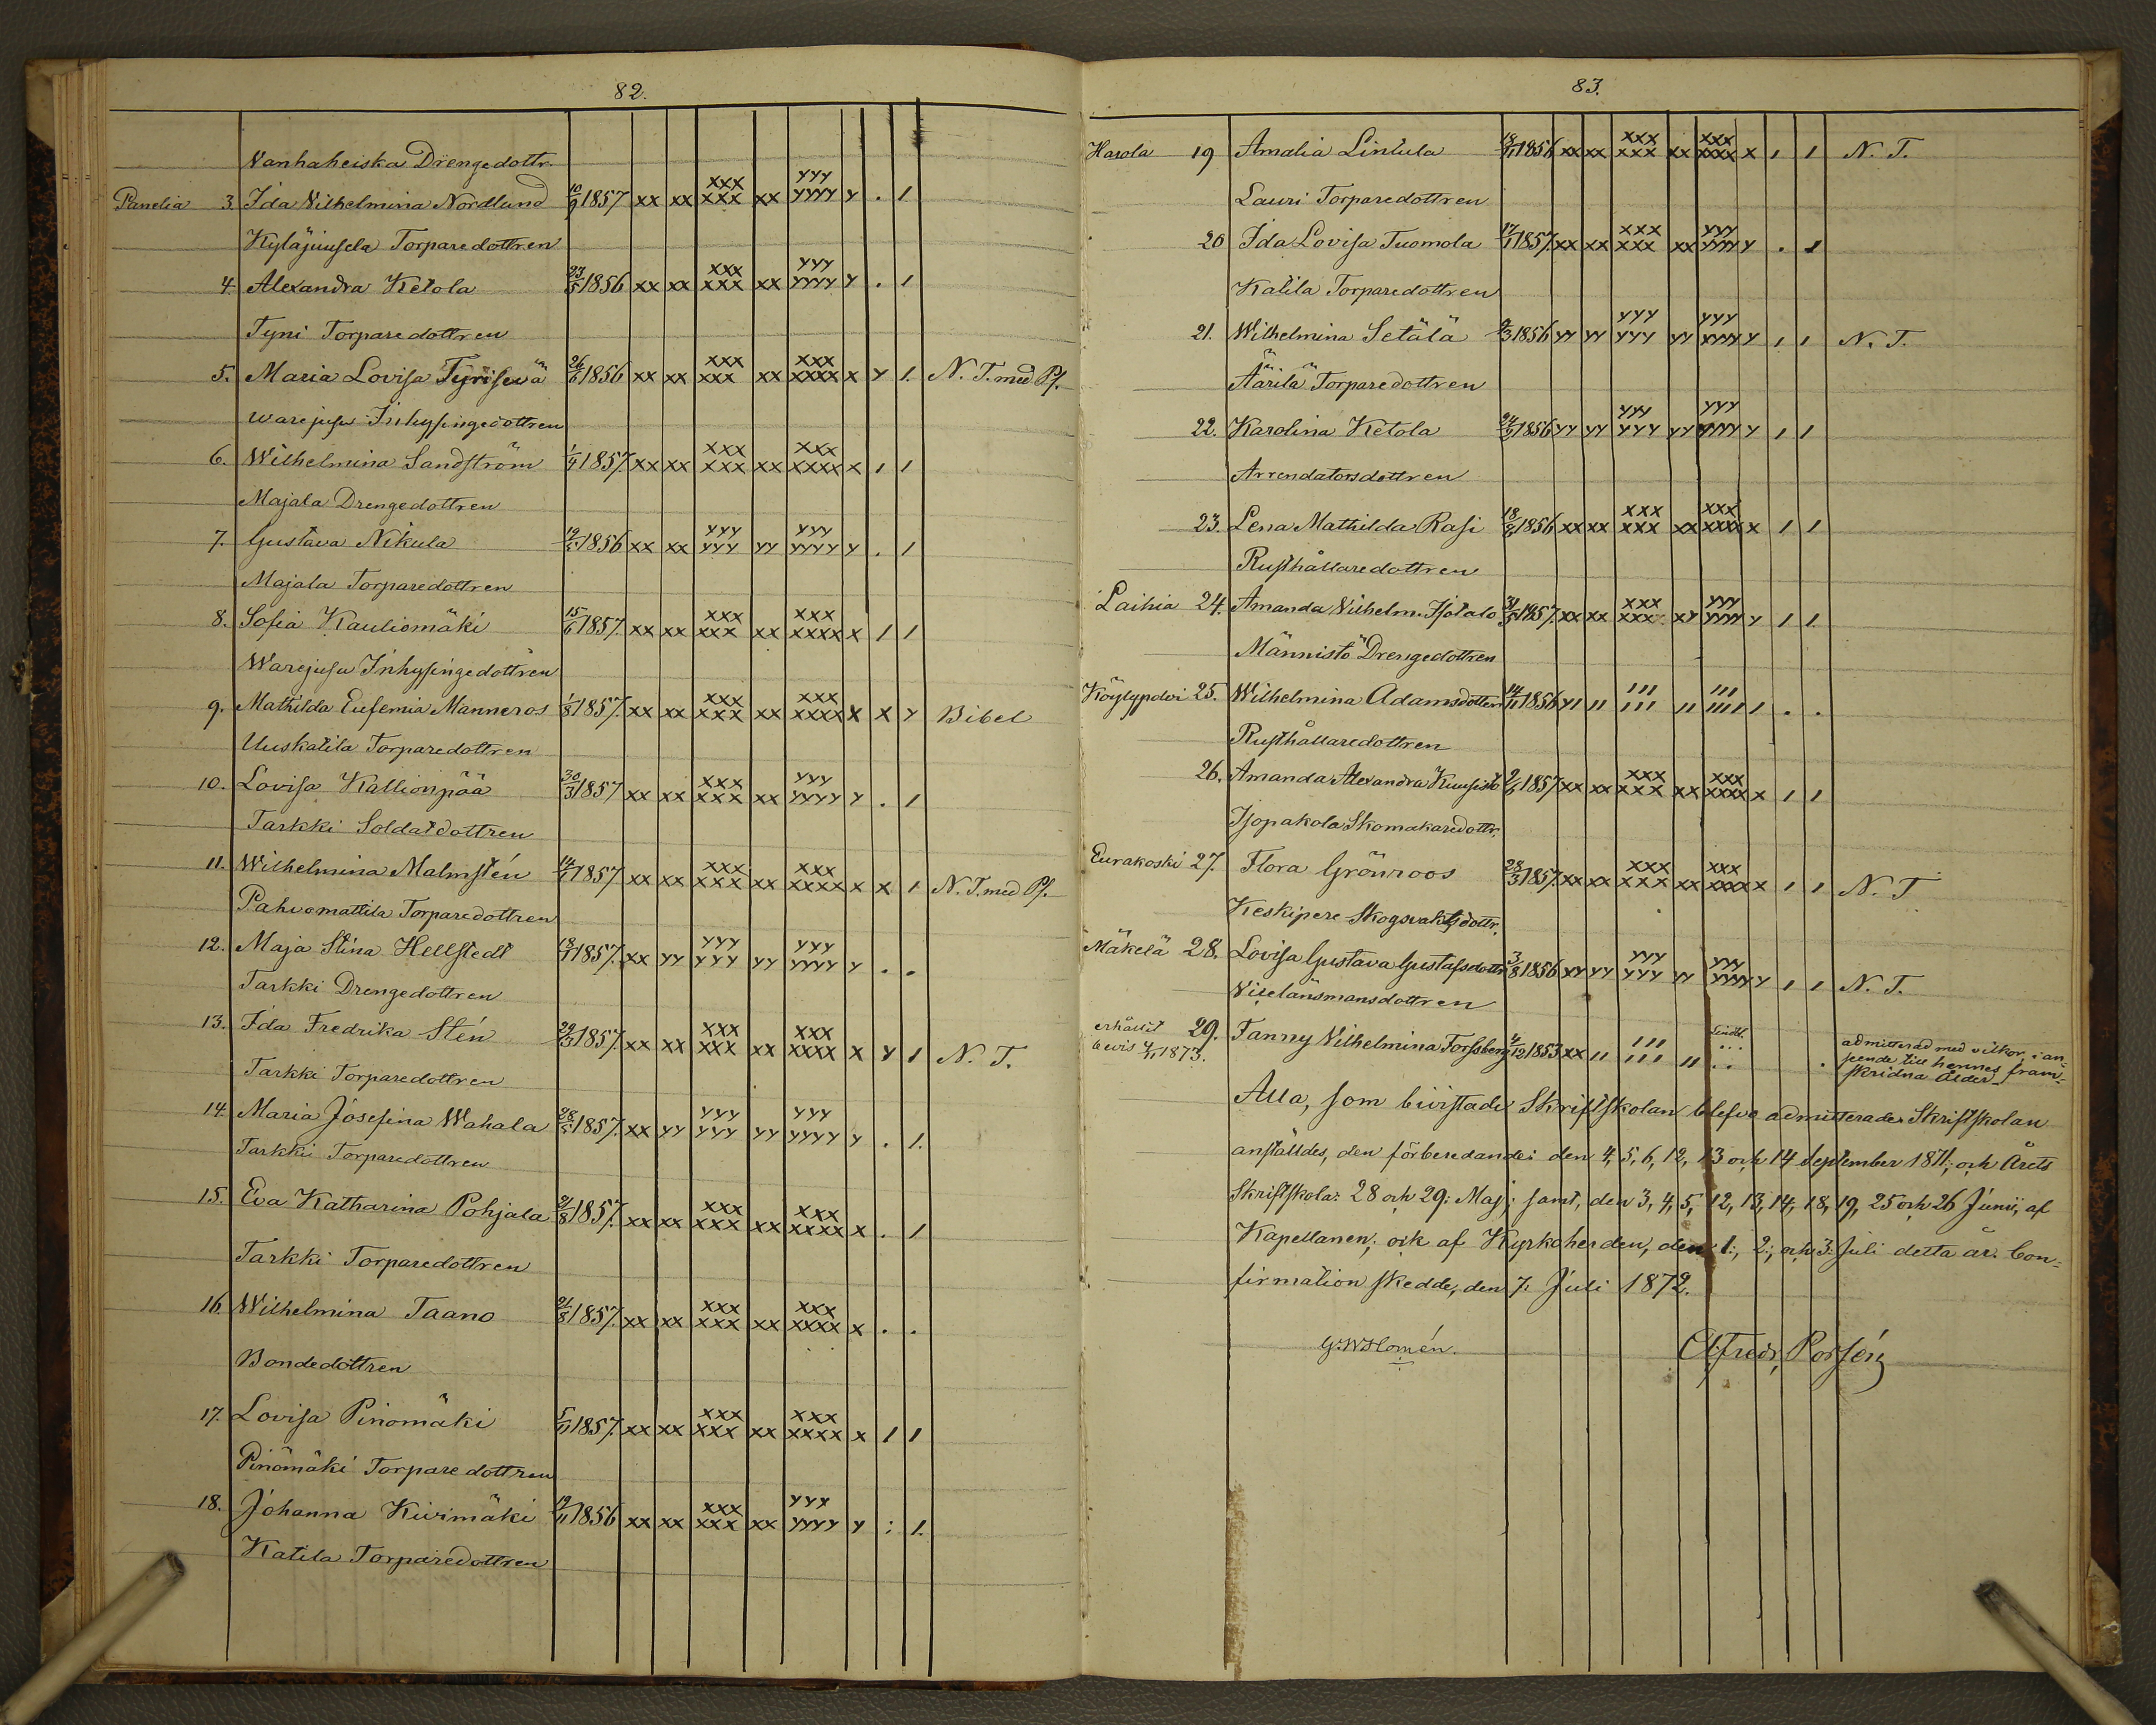 82.
Vanhaheiska Drengedottr.
Panelia 3. Ida Vilhelmina Nordlund 10/9 1857 xx xx xxx xxx xx yyy yyyy y . 1
Kyläjuusela Torparedottren
4. Alexandra Ketola 23/5 1856 xx xx xxx xxx xx yyy yyyy y . 1
Tyni Torparedottren
5. Maria Lovisa 26/6 1856 xx xx xxx xxx xx xxx xxxx x y 1. N. T. med Ps.
Warejusu Inhysingedottren
6. Wilhelmina Sandström 1/4 1857. xx xx xxx xxx xx xxx xxxx x 1 1
Majala Drengedottren
7. Gustava Nikula 1856 xx xx yyy yyy yy yyy yyyy y . 1
Majala Torparedottren
8. Sofia Kauliomäki 15/6 1857. xx xx xxx xxx xx xxx xxxx x 1 1
Warejusu Inhysingedottren
9. Mathilda Eufemia Manneros 1/8 1857. xx xx xxx xxx xx xxx xxxx x x y Bibel
Uuskatila Torparedottren
10. Lovisa Kallionpää 30/3 1857 xx xx xxx xxx xx yyy yyyy y . 1
Tarkki Soldatdottren
11. Wilhelmina Malmstén 14/1 1857 xx xx xxx xxx xx xxx xxxx x x 1 N. T. med Ps.
Pahvomattila Torparedottren
12. Maja Stina Hellstedt 1857. xx yy yyy yyy yy yyy yyyy y . .
Tarkki Drengedottren
13. Ida Fredrika Stén 29/3 1857. xx xx xxx xxx xx xxx xxxx x y 1 N. T.
Tarkki Torparedottren
14. Maria Josefina Wahala 28/5 1857. xx yy yyy yyy yy yyy yyyy y . 1.
Tarkki Torparedottren
15. Eva Katharina Pohjala 21/8 1857. xx xx xxx xxx xx xxx xxxx x . 1
Tarkki Torparedottren
16. Wilhelmina Taano 21/8 1857. xx xx xxx xxx xx xxx xxxx x . .
Bondedottren
17. Lovisa Piriomäki 1857. xx xx xxx xxx xx xxx xxxx x 1 1
Piriomäki Torparedottren
18. Johanna Kivimäki 19/11 1856 xx xx xxx xxx xx yyx yyyy y : 1.
Katila Torparedottren
83.
Harola 19 Amalia Lintula 18/11 1856 xx xx xxx xxx xx xxx xxxx x 1 1 N. T.
Lauri Torparedottren
20 Ida Lovisa Tuomola 17/1 1857. xx xx xxx xxx xx yyy yyyy y . 1
Katila Torparedottren
21. Wilhelmina Setälä 1856 yy yy yyy yyy yy yyy yyyy y 1 1 N. T.
Äärilä Torparedottren
22. Karolina Ketola 1856 yy yy yyy yyy yy yyy yyyy y 1 1
Arrendatorsdottren
23. Lena Mathilda Rasi 1856 xx xx xxx xxx xx xxx xxxx x 1 1
Rusthållaredottren
Laihia 24. Amanda Vilhelm. Isotalo 31/5 1857. xx xx xxx xxx xy yyy yyyy y 1 1.
Männistö Drengedottren
Köylypolvi 25. Wilhelmina Adamsdotter 14/11 1856 y1 11 111 111 11 111 1111 1 . .
Rusthållaredottren
26. Amanda Alexandra Kuusisto 1857 xx xx xxx xxx xx xxx xxxx x 1 1
Isopakola Skomakaredottr.
Eurakoski 27. Flora Grönroos 28/3 1857. xx xx xxx xxx xx xxx xxxx x 1 1 N. T
Keskipere Skogsvaktsdottr.
Mäkelä 28. Lovisa Gustava Gustafsdottr 3/8 1856 xy yy yyy yyy yy yyy yyyy y 1 1 N. T.
Viselänsmansdottren
erhållit 29. Fanny Vilhelmina Forssberg 1853 xx 11 111 111 11
bevis 4/11 1873.
admitterad med vilkor, i an-
seende till hennes fram-
skridna ålder.
Alla, som bivistade Skriftskolan blefvo admitterade. Skriftskolan
anställdes, den förberedande: den 4, 5, 6, 12, 13 och 14 September 1871; och Årets
Skriftskola: 28 och 29: Maj; samt, den 3, 4, 5, 12, 13, 14, 18, 19, 25 och 26 Junii, af
Kapellanen; och af Kyrkoherden, den 1:, 2:, och 3: Juli detta år. Con-
firmation skedde, den 7. Juli 1872.
G. W. Homén. Alfred Porsén